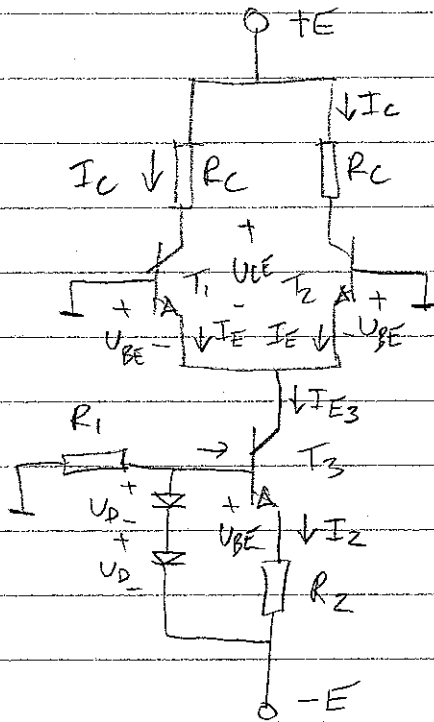 +E
I_C
I_C R_C R_C
+
T_1 U_CE T_2
-
+ U_BE - I_E I_E - U_BE +
I_E3
R_1
T_3
+ U_D -
+ U_BE - I_2
+ U_D -
R_2
-E